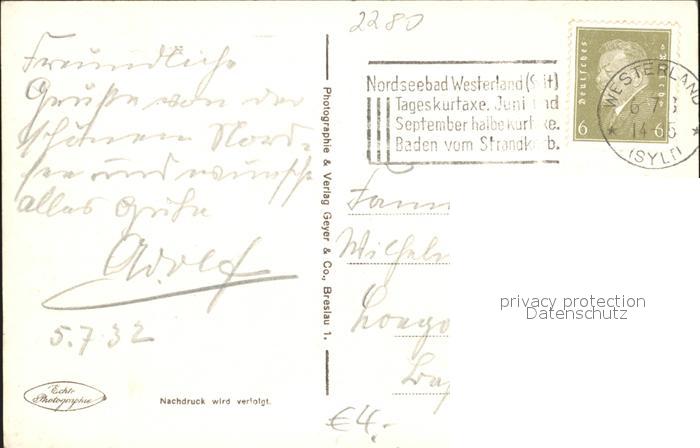 2280
Freundliche
Grüße von der
schönen Nord-
see und wünsche
alles Gute
Adolf
5.7.32
Echte
Photographie
Nachdruck wird verfolgt.
Photographie & Verlag Geyer & Co., Breslau 1.
Nordseebad Westerland (Sylt)
Tageskurtaxe. Juni und
September halbe Kurtaxe.
Baden vom Strandkorb.
Deutsches Reich
6 6
WESTERLAND
(SYLT)
Wilhelm
€4.-
privacy protection
Datenschutz